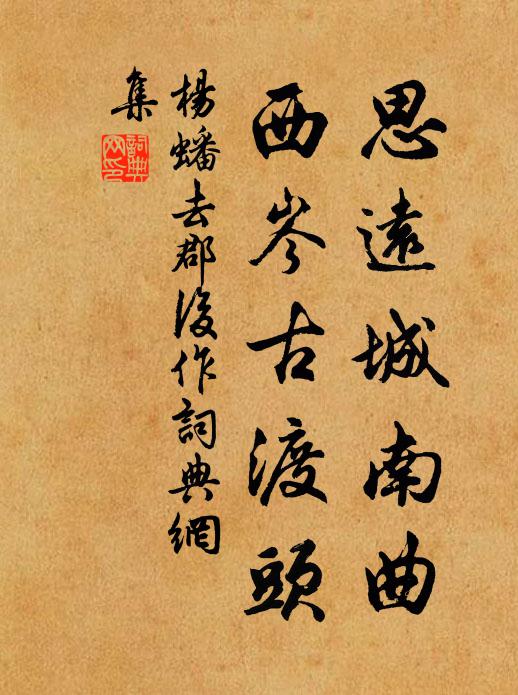 思遠城南曲
西岑古渡頭
楊蟠去郡後作詞典網
集
詞典
网印